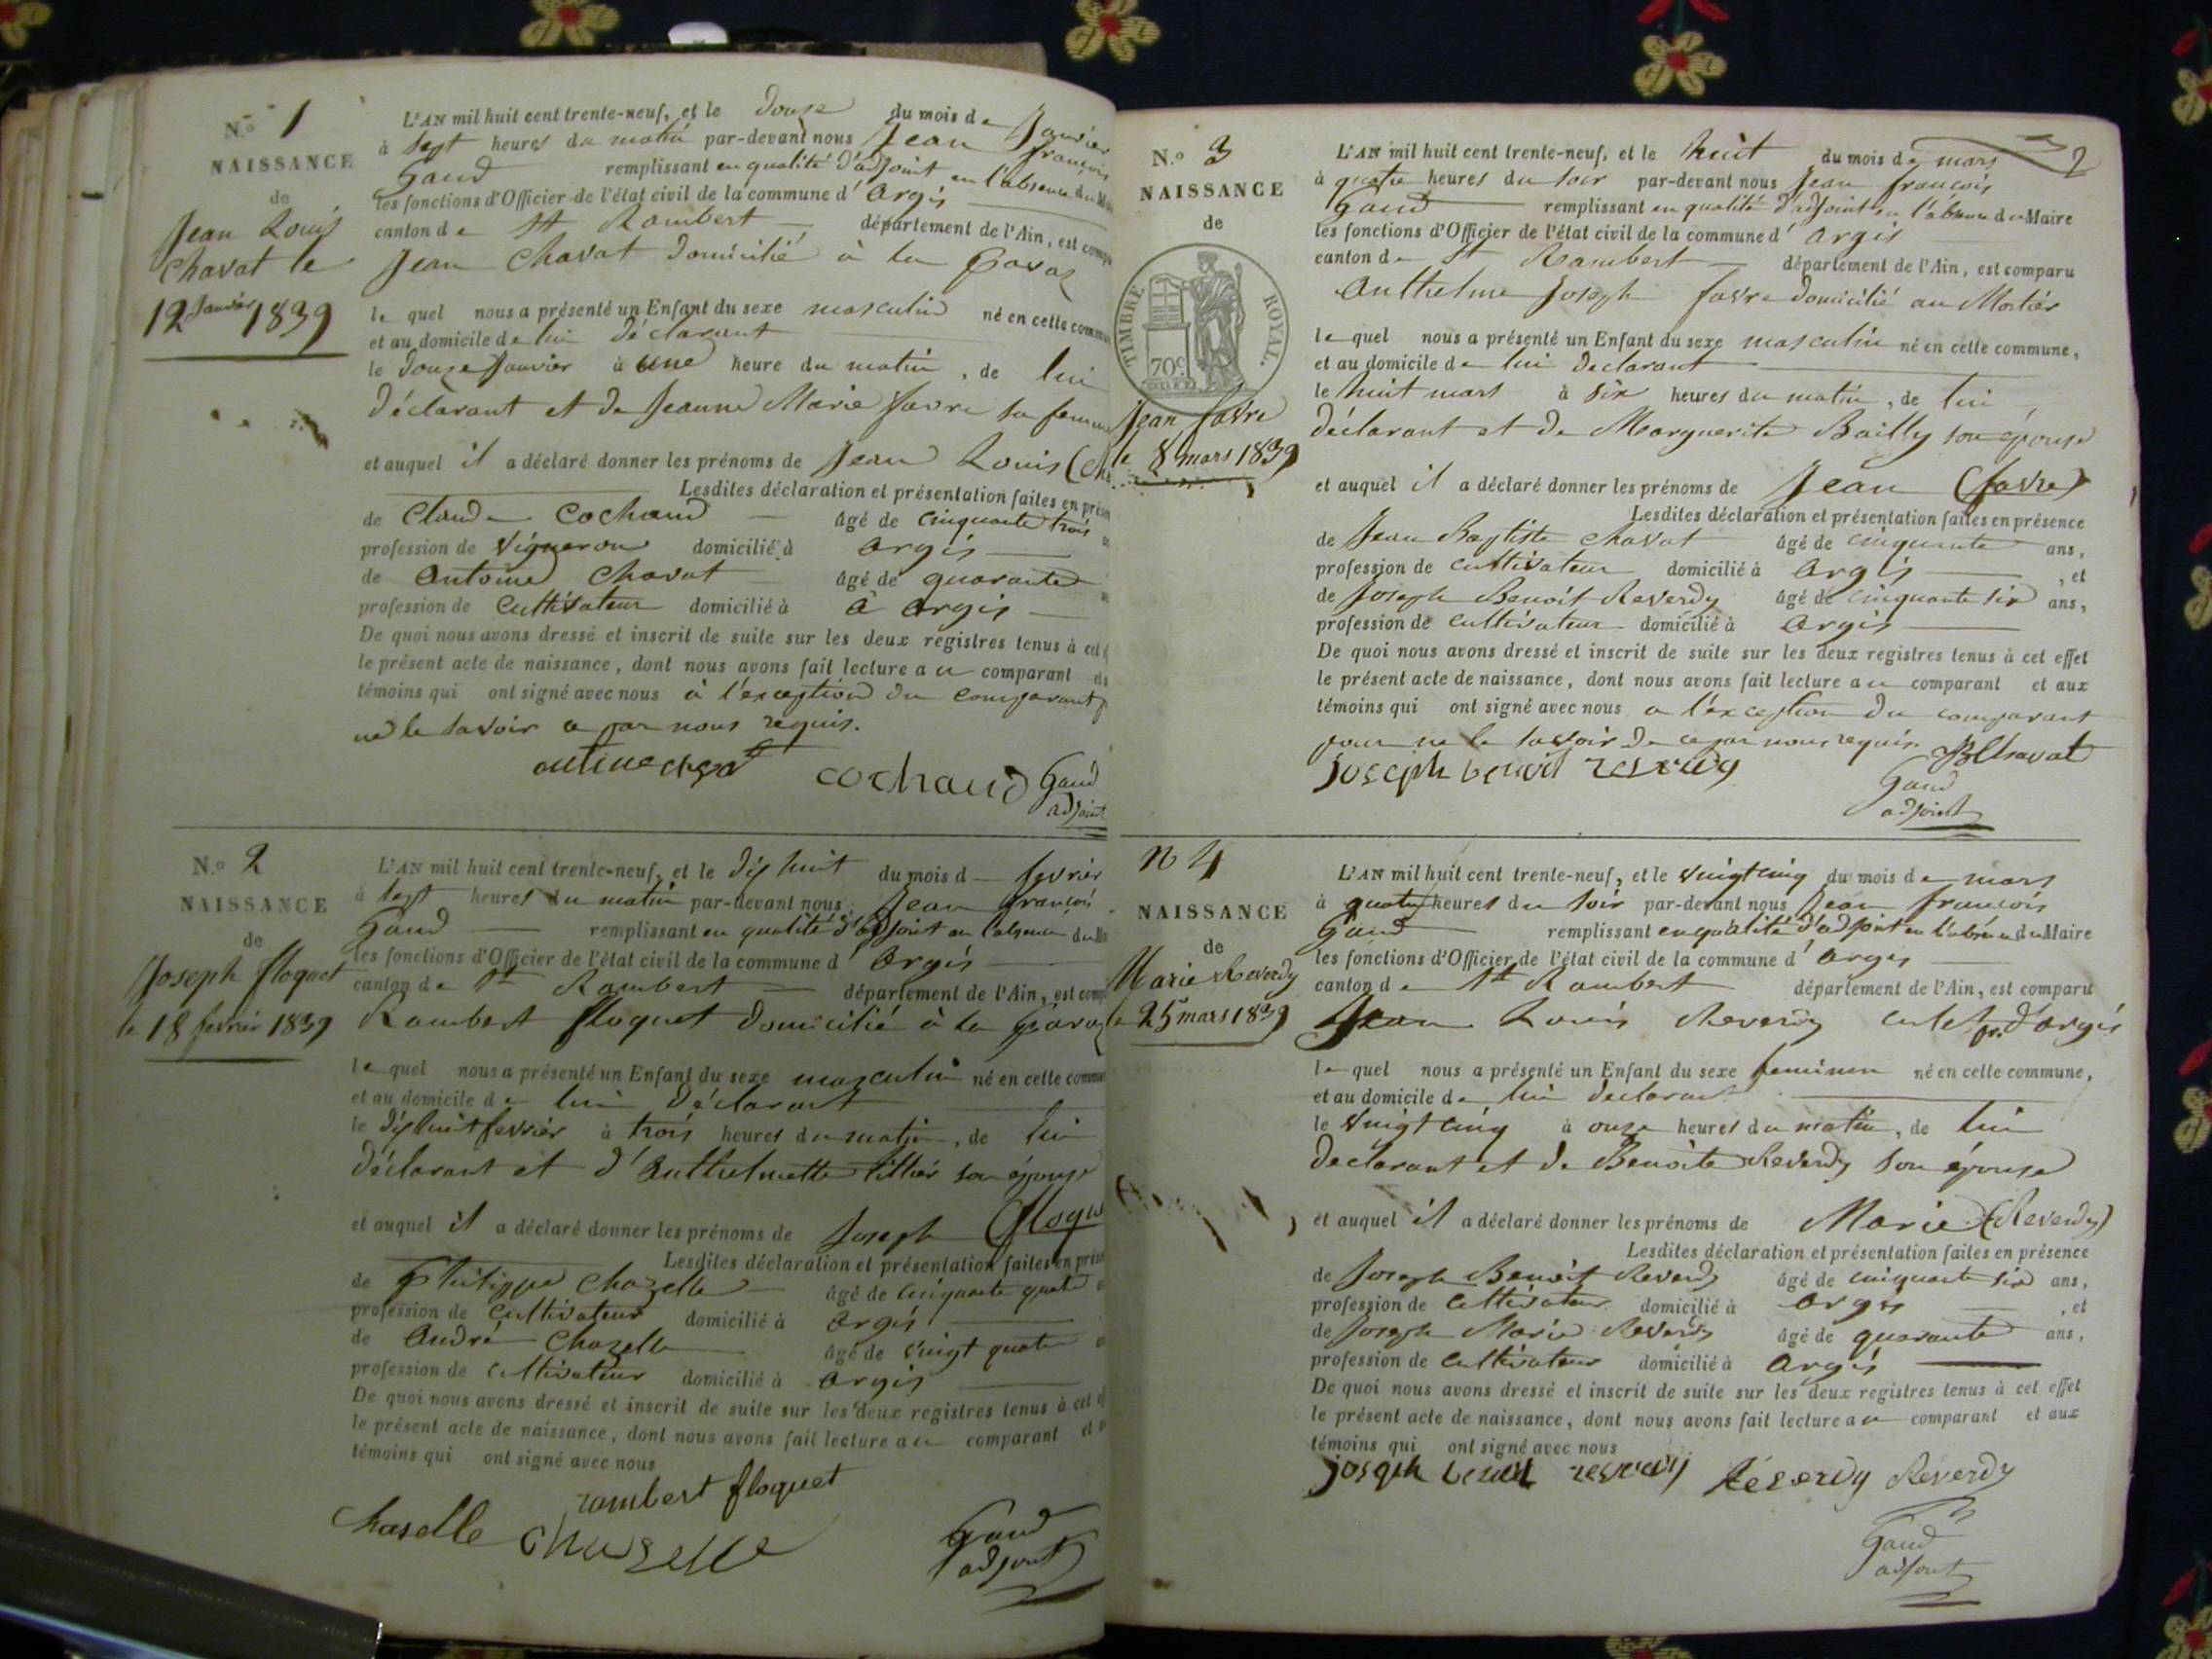 N.o 1
NAISSANCE
de
Jean Louis
Chavat le
12 Janvier 1839
L'AN mil huit cent trente-neuf, et le Douze du mois de Janvier
à sept heures du matin par-devant nous Jean françois
Gaud remplissant en qualité d'adjoint en l'absence du
les fonctions d'Officier de l'état civil de la commune d' Argis
canton de St Rambert département de l'Ain, est
Jean Chavat Domicilié à la
le quel nous a présenté un Enfant du sexe masculin né en cette
et au domicile de lui Déclarant
le Douze Janvier à une heure du matin, de lui
Déclarant et de Jeanne Marie favre sa femme
et auquel il a déclaré donner les prénoms de Jean Louis
Lesdites déclaration et présentation faites en
de Claude Cochaud âgé de cinquante trois
profession de Vigneron domicilié à Argis
de Antoine Chavat âgé de quarante
profession de Cultivateur domicilié à à Argis
De quoi nous avons dressé et inscrit de suite sur les deux registres tenus à cet
le présent acte de naissance, dont nous avons fait lecture au comparant
témoins qui ont signé avec nous à l'exception du comparant
ne le savoir ce par nous requis.
cochaud Gaud
adjoint
N.o 2
NAISSANCE
de
Joseph floquet
le 18 fevrier 1839
L'AN mil huit cent trente-neuf, et le Dix huit du mois d fevrier
à sept heures du matin par-devant nous Jean françois
Gaud remplissant en qualité d'adjoint en l'absence du
les fonctions d'Officier de l'état civil de la commune d' Argis
canton de St Rambert département de l'Ain, est
Rambert floquet Domicilié à la
le quel nous a présenté un Enfant du sexe masculin né en cette
et au domicile de lui Déclarant
le Dix huit fevrier à trois heures du matin, de lui
Déclarant et d'Anthelmette son épouse
et auquel il a déclaré donner les prénoms de Joseph
Lesdites déclaration et présentation faites en
de Philippe Chazelle âgé de cinquante quatre
profession de Cultivateur domicilié à Argis
de André Chazelle âgé de vingt quatre
profession de Cultivateur domicilié à Argis
De quoi nous avons dressé et inscrit de suite sur les deux registres tenus à cet
le présent acte de naissance, dont nous avons fait lecture au comparant et
témoins qui ont signé avec nous
rambert floquet
chaselle chaselle Gaud
adjoint
2
N.o 3
NAISSANCE
de
TIMBRE ROYAL.
70c.
Jean favre
le 8 mars 1839
L'AN mil huit cent trente-neuf, et le huit du mois de mars
à quatre heures du soir par-devant nous Jean françois
Gaud remplissant en qualité d'adjoint en l'absence du Maire
les fonctions d'Officier de l'état civil de la commune d' Argis
canton de St Rambert département de l'Ain, est comparu
Anthelme Joseph favre Domicilié au Mortier
le quel nous a présenté un Enfant du sexe masculin né en cette commune,
et au domicile de lui Declarant
le huit mars à six heures du matin, de lui
déclarant et de Marguerite Bailly son épouse
et auquel il a déclaré donner les prénoms de Jean (favre)
Lesdites déclaration et présentation faites en présence
de Jean Baptiste Chavat âgé de cinquante ans,
profession de cultivateur domicilié à Argis, et
de Joseph Benoit Reverdy âgé de cinquante six ans,
profession de cultivateur domicilié à Argis
De quoi nous avons dressé et inscrit de suite sur les deux registres tenus à cet effet
le présent acte de naissance, dont nous avons fait lecture au comparant et aux
témoins qui ont signé avec nous a l'exception du comparant
pour ne le savoir de ce par nous requis JBChavat
joseph benoit reverdy Gaud
adjoint
N 4
NAISSANCE
de
Marie Reverdy
le 25 mars 1839
L'AN mil huit cent trente-neuf, et le vingt cinq du mois de mars
à quatre heures du soir par-devant nous Jean françois
Gaud remplissant en qualité d'adjoint en l'absence du Maire
les fonctions d'Officier de l'état civil de la commune d' Argis
canton de St Rambert département de l'Ain, est comparu
Jean Louis Reverdy d'Argis
le quel nous a présenté un Enfant du sexe feminin né en cette commune,
et au domicile de lui Declarant
le vingt cinq à onze heures du matin, de lui
Declarant et de Benoite Reverdy son épouse
et auquel il a déclaré donner les prénoms de Marie (Reverdy)
Lesdites déclaration et présentation faites en présence
de Joseph Benoit Reverdy âgé de cinquante six ans,
profession de Cultivateur domicilié à Argis, et
de Joseph Marie Reverdy âgé de quarante ans,
profession de Cultivateur domicilié à Argis
De quoi nous avons dressé et inscrit de suite sur les deux registres tenus à cet effet
le présent acte de naissance, dont nous avons fait lecture au comparant et aux
témoins qui ont signé avec nous
joseph benoit reverdy Réverdy Reverdy
Gaud
adjoint